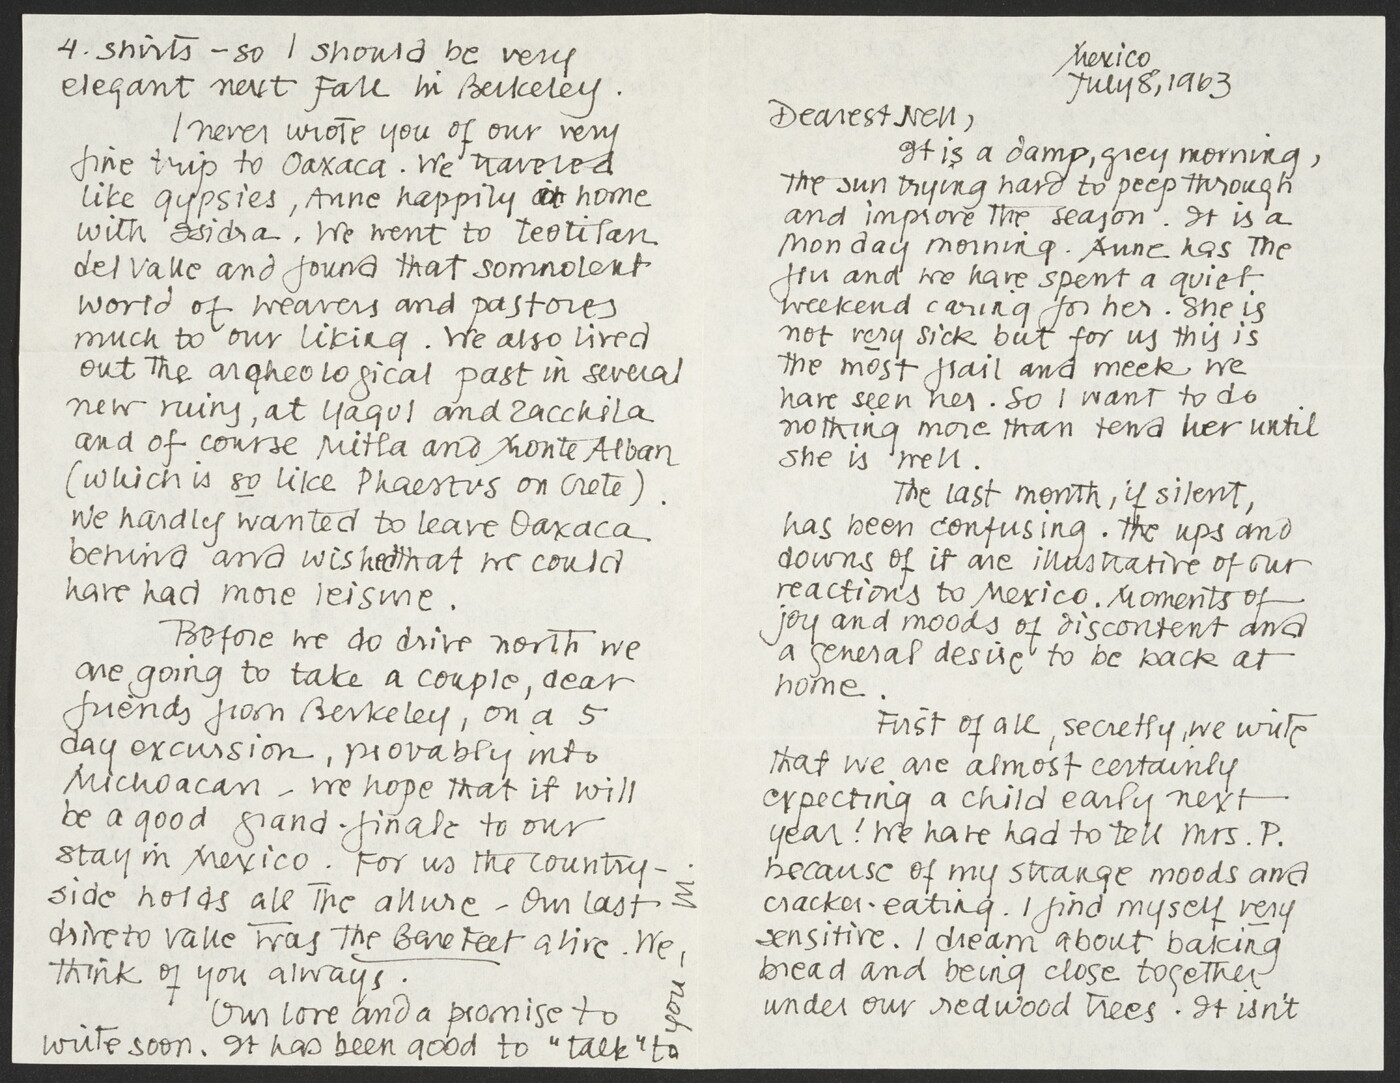 4. shirts – so I should be very
elegant next Fall in Berkeley.
I never wrote you of our very
fine trip to Oaxaca. We traveled
like gypsies, Anne happily at home
with Isidra. We went to Teotitlan
del Valle and found that somnolent
world of weavers and pastores
much to our liking. We also lived
out the archeological past in several
new ruins, at Yagul and Zacchila
and of course Mitla and Monte Alban
(which is so like Phaestus on Crete).
We hardly wanted to leave Oaxaca
behind and wished that we could
have had more leisure.
Before we do drive north we
are going to take a couple, dear
friends from Berkeley, on a 5
day excursion, provably into
Michoacan – we hope that it will
be a good grand-finale to our
stay in Mexico. For us the country-
side holds all the allure – Our last
drive to Valle was The Bare Feet alive. We
think of you always.
Our love and a promise to
write soon. It has been good to "talk" to
you – M.
Mexico
July 8, 1963
Dearest Nell,
It is a damp, grey morning,
the sun trying hard to peep through
and improve the season. It is a
Monday morning. Anne has the
flu and we have spent a quiet
weekend caring for her. She is
not very sick but for us this is
the most frail and meek we
have seen her. So I want to do
nothing more than tend her until
she is well.
The last month, if silent,
has been confusing. The ups and
downs of it are illustrative of our
reactions to Mexico. Moments of
joy and moods of discontent and
a general desire to be back at
home.
First of all, secretly, we write
that we are almost certainly
expecting a child early next
year! We have had to tell Mrs. P.
because of my strange moods and
cracker-eating. I find myself very
sensitive. I dream about baking
bread and being close together
under our redwood trees. It isn't